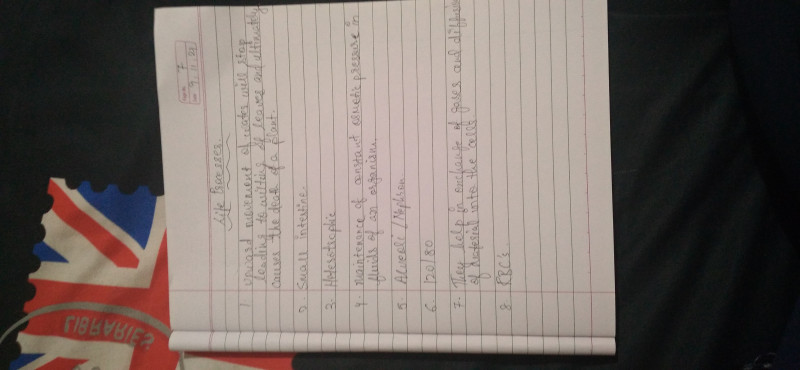 7
9.11.
Life Processes.
1. Upward movement of water will stop
leading to wilting of leaves and ultimately
causes the death of a plant.
2. Small Intestine.
3. Heterotrophic
4. Maintenance of constant osmotic pressure in
fluids of an organism.
5. Alveoli / Nephron
6. 120/80
7. They help in exchange of gases and diffusion
of material into the cells
8. RBC's
LIBRARIES